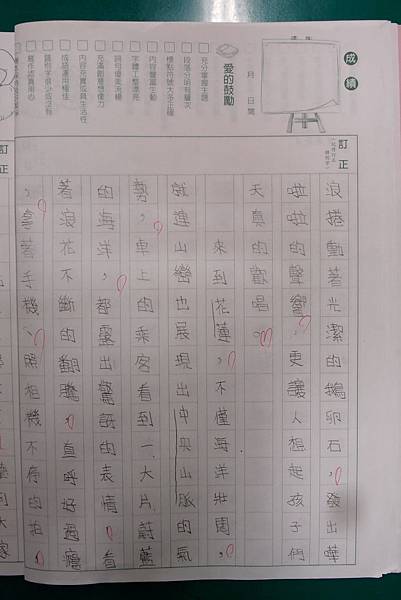 成績
月 日 閱
愛的鼓勵
充分掌握主題
段落分明有層次
標點符號大多正確
內容豐富生動
字體工整漂亮
詞句優美流暢
充滿創意想像力
成語運用極佳
錯別字很少或沒有
寫作認真用心
訂正
浪捲動著光潔的鵝卵石,發出嘩
啦啦的聲響,更讓人想起孩子們
天真的歡唱。
來到花蓮,不僅海洋壯闊,
就連山巒也展現出中央山脈的氣
勢,車上的乘客看到一大片蔚藍
的海洋,都露出驚訝的表情,看
著浪花不斷的翻騰,直呼好過癮
,拿著手機、照相機不停的拍。
訂正